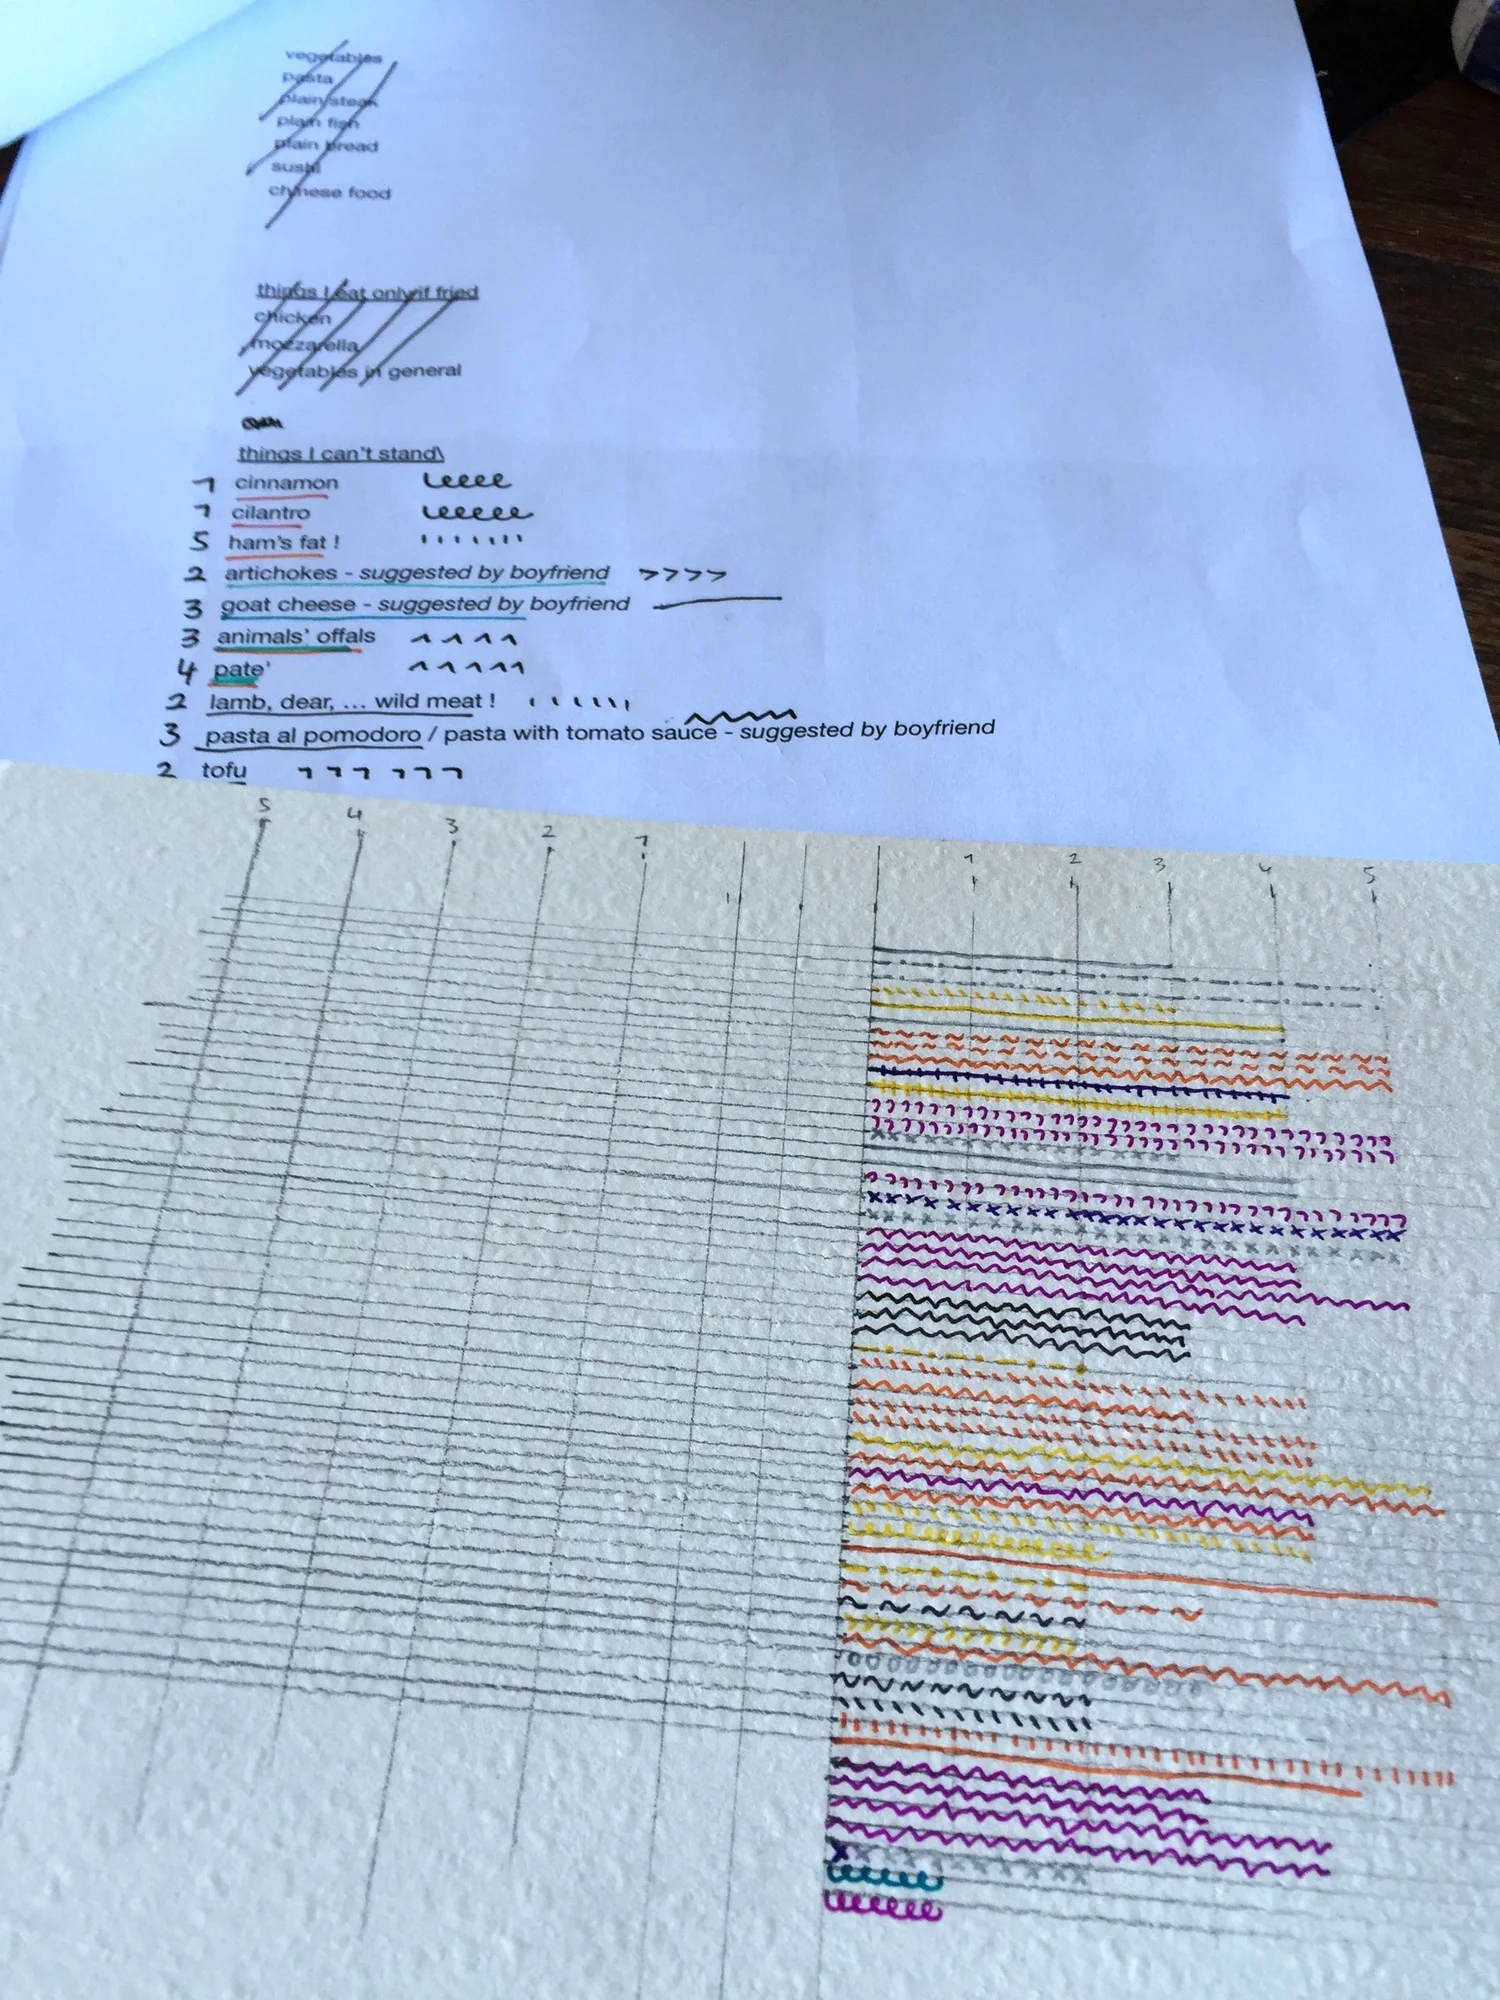 vegetables
pasta
plain steak
plain fish
plain bread
sushi
chinese food
things I eat only if fried
chicken
mozzarella
vegetables in general
things I can't stand\
1 cinnamon
1 cilantro
5 ham's fat !
2 artichokes - suggested by boyfriend
3 goat cheese - suggested by boyfriend
3 animals' offals
4 pate'
2 lamb, dear, ... wild meat !
3 pasta al pomodoro / pasta with tomato sauce - suggested by boyfriend
2 tofu
5 4 3 2 1 1 2 3 4 5